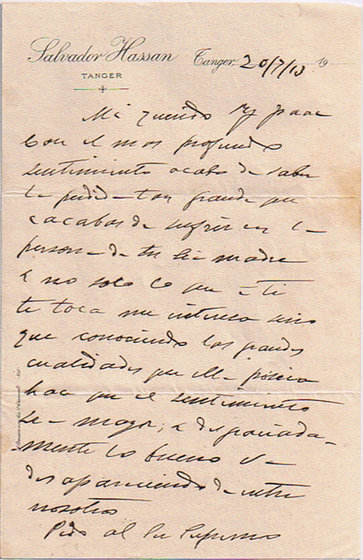 Salvador Hassan
TANGER
Tanger, 20/7/13 19
Mi querido Isaac
Con el mas profundo
sentimiento acabo de saber
la perdida tan grande que
acabas de sufrir en la
persona de tu Sra madre
e no solo lo que a ti
te toca me interesa sino
que conociendo las grandes
cualidades que ella poseia
hace que el sentimiento
sea mayor, e desgraciada-
mente lo bueno va
desapareciendo de entre
nosotros
Pido al Ser Supremo